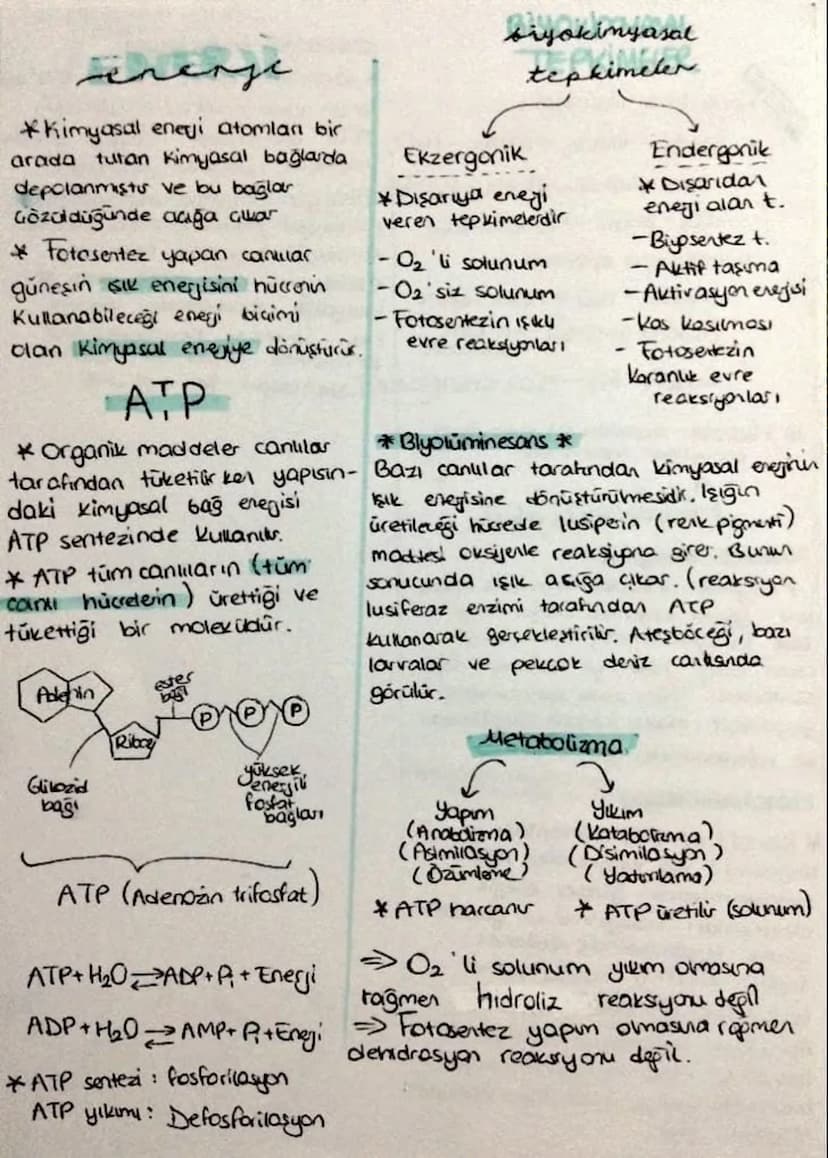 enerji
*Kimyasal enerji atomları bir
arada tutan kimyasal bağlarda
depolanmıştır ve bu bağlar
çözüldüğünde açığa çıkar
* Fotosentez yapan canlılar
güneşin ışık enerjisini hücrenin
kullanabileceği enerji biçimi
olan kimyasal enerjiye dönüştürür.
ATP
* Organik maddeler canlılar
tarafından tüketilirken yapısın-
daki kimyasal bağ enerjisi
ATP sentezinde kullanılır.
* ATP tüm canlıların (tüm
canlı hücrelerin) ürettiği ve
tükettiği bir moleküldür.
Adenin
ester
bağı
P P P
Riboz
Glikozid
bağı
yüksek
enerjili
fosfat
bağları
ATP (Adenozin trifosfat)
ATP+H₂O⇄ADP+Pi+Enerji
ADP+H₂O⇄AMP+Pi+Enerji
*ATP sentezi: fosforilasyon
ATP yıkımı: Defosforilasyon
biyokimyasal
tepkimeler
Ekzergonik
*Dışarıya enerji
veren tepkimelerdir
- O₂'li solunum
- O₂'siz solunum
- Fotosentezin ışıklı
evre reaksiyonları
Endergonik
* Dışarıdan
enerji alan t.
-Biyosentez t.
- Aktif taşıma
-Aktivasyon enerjisi
-Kas kasılması
- Fotosentezin
karanlık evre
reaksiyonları
*Biyolüminesans *
Bazı canlılar tarafından kimyasal enerjinin
ışık enerjisine dönüştürülmesidir. Işığın
üretileceği hücrede lusiperin (renk pigmenti)
maddesi oksijenle reaksiyona girer. Bunun
sonucunda ışık açığa çıkar. (reaksiyon
lusiferaz enzimi tarafından ATP
kullanarak gerçekleştirilir. Ateşböceği, bazı
larvalar ve pekçok deniz canlısında
görülür.
Metabolizma
Yapım
(Anabolizma)
(Asimilasyon)
(Özümleme)
*ATP harcanır
Yıkım
(Katabolizma)
(Disimilasyon)
(Yadımlama)
* ATP üretilir (solunum)
⇒ O₂'li solunum yıkım olmasına
rağmen hidroliz reaksiyonu değil
⇒ Fotosentez yapım olmasına rağmen
dehidrasyon reaksiyonu değil.